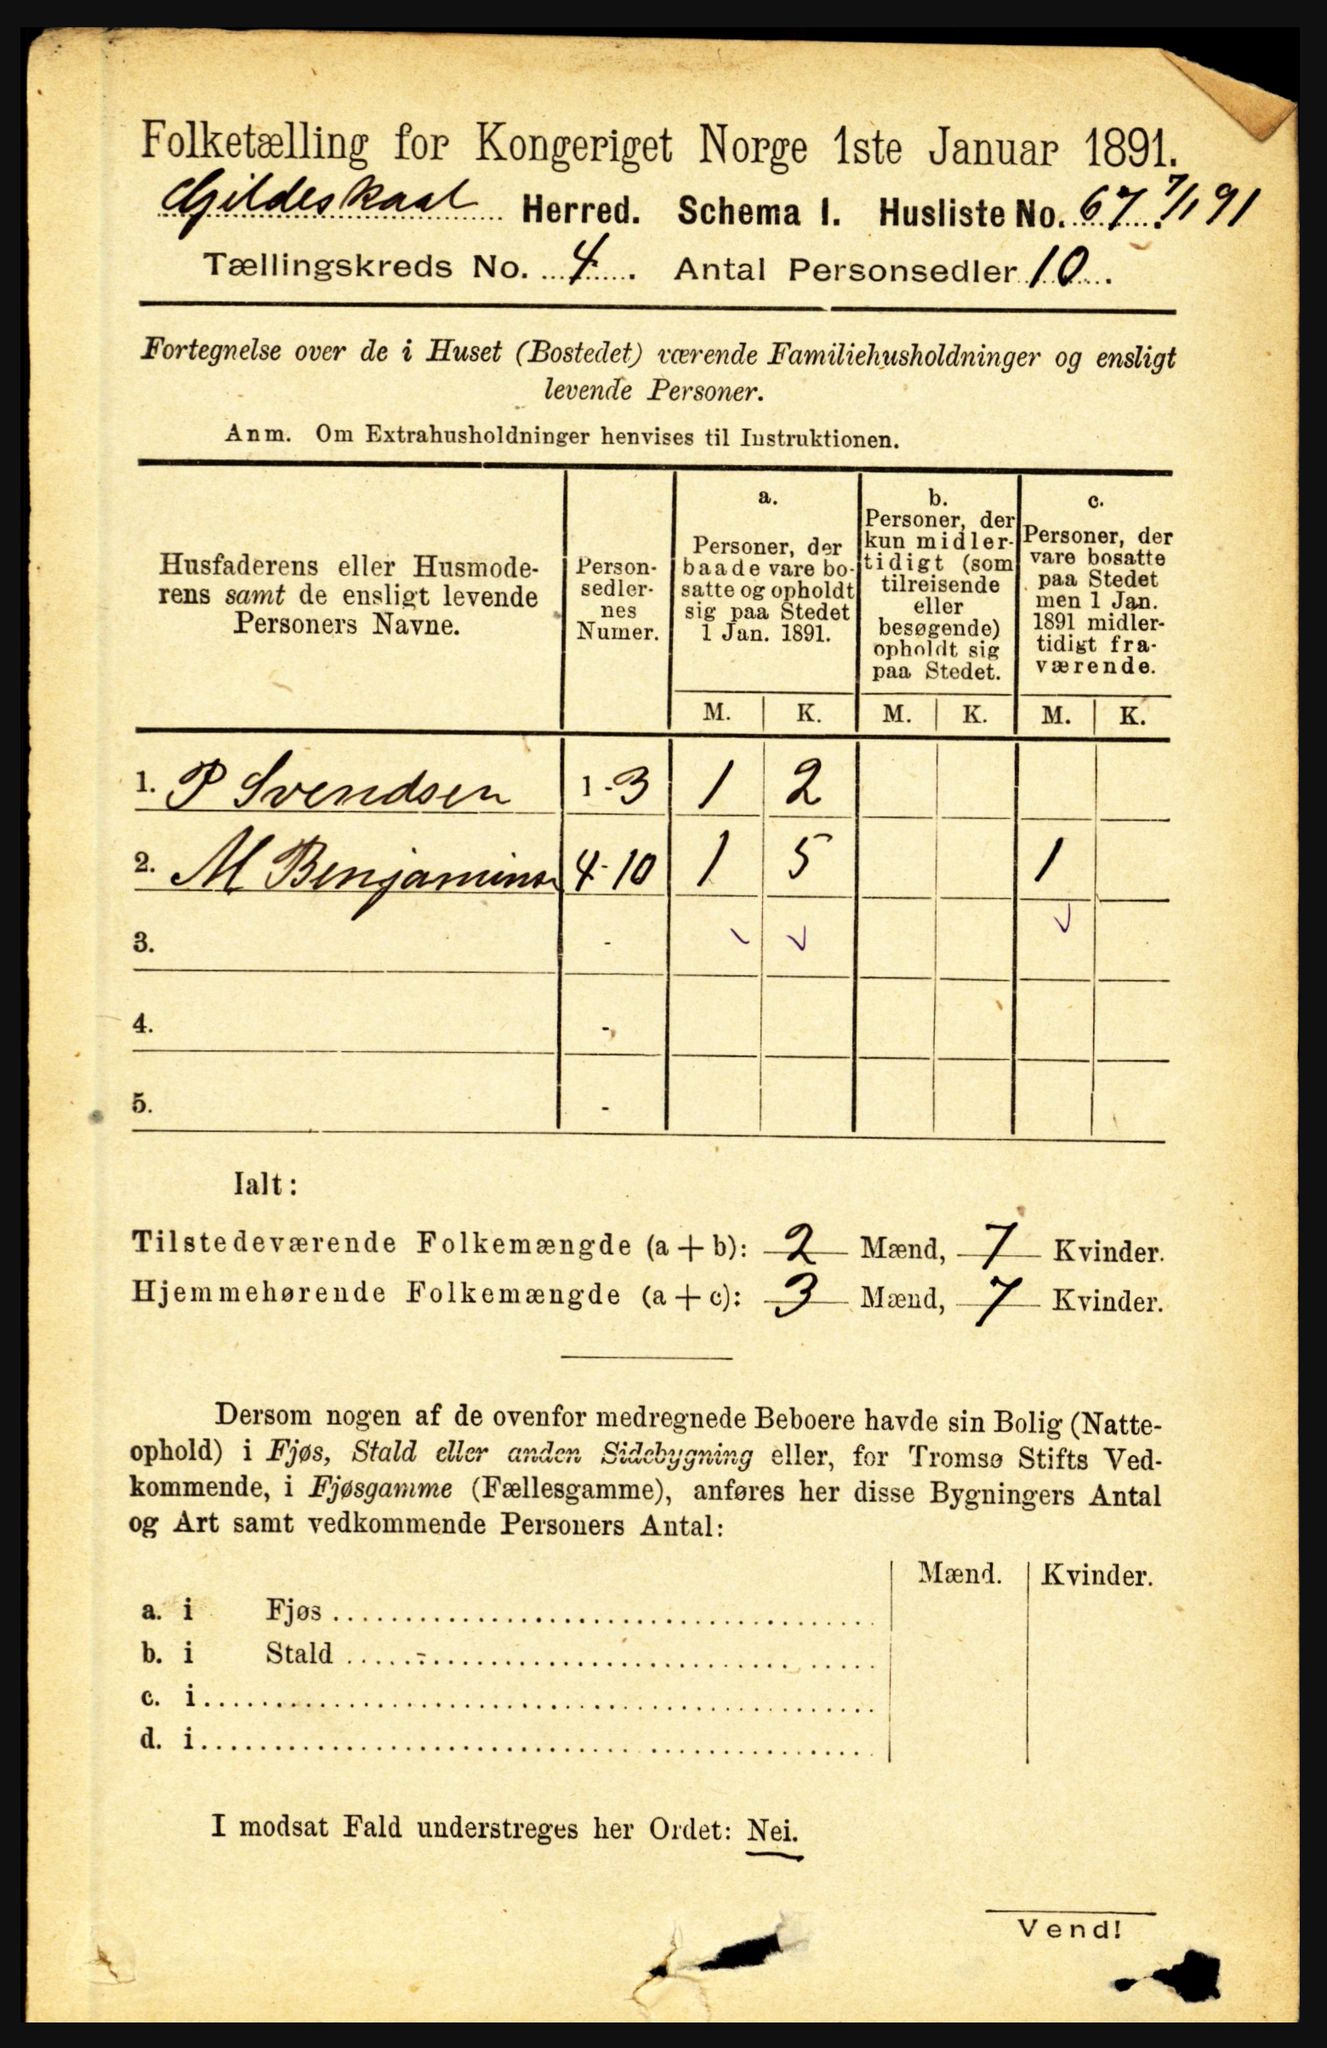 Folketælling for Kongeriget Norge 1ste Januar 1891.
Gildeskaal Herred. Schema I. Husliste No. 67. 7/1 91
Tællingskreds No. 4. Antal Personsedler 10.
Fortegnelse over de i Huset (Bostedet) værende Familiehusholdninger og ensligt
levende Personer.
Anm. Om Extrahusholdninger henvises til Instruktionen.
Husfaderens eller Husmode-
rens samt de ensligt levende
Personers Navne.
Person-
sedler-
nes
Numer.
a.
Personer, der
baade vare bo-
satte og opholdt
sig paa Stedet
1 Jan. 1891.
b.
Personer, der
kun midler-
tidigt (som
tilreisende
eller
besøgende)
opholdt sig
paa Stedet.
c.
Personer, der
vare bosatte
paa Stedet
men 1 Jan.
1891 midler-
tidigt fra-
værende.
M. K. M. K. M. K.
1. P Svendsen 1-3 1 2
2. M Benjaminsen 4-10 1 5 1
3. -
4. -
5. -
Ialt:
Tilstedeværende Folkemængde (a + b): 2 Mænd, 7 Kvinder.
Hjemmehørende Folkemængde (a + c): 3 Mænd, 7 Kvinder.
Dersom nogen af de ovenfor medregnede Beboere havde sin Bolig (Natte-
ophold) i Fjøs, Stald eller anden Sidebygning eller, for Tromsø Stifts Ved-
kommende, i Fjøsgamme (Fællesgamme), anføres her disse Bygningers Antal
og Art samt vedkommende Personers Antal:
Mænd. Kvinder.
a. i Fjøs
b. i Stald
c. i
d. i
I modsat Fald understreges her Ordet: Nei.
Vend!